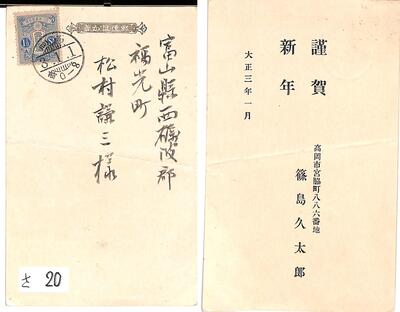 富山縣西礪波郡
福光町
松村謙三様
さ 20
謹賀
新年
大正三年一月
高岡市宮脇町八八六番地
篠島久太郎